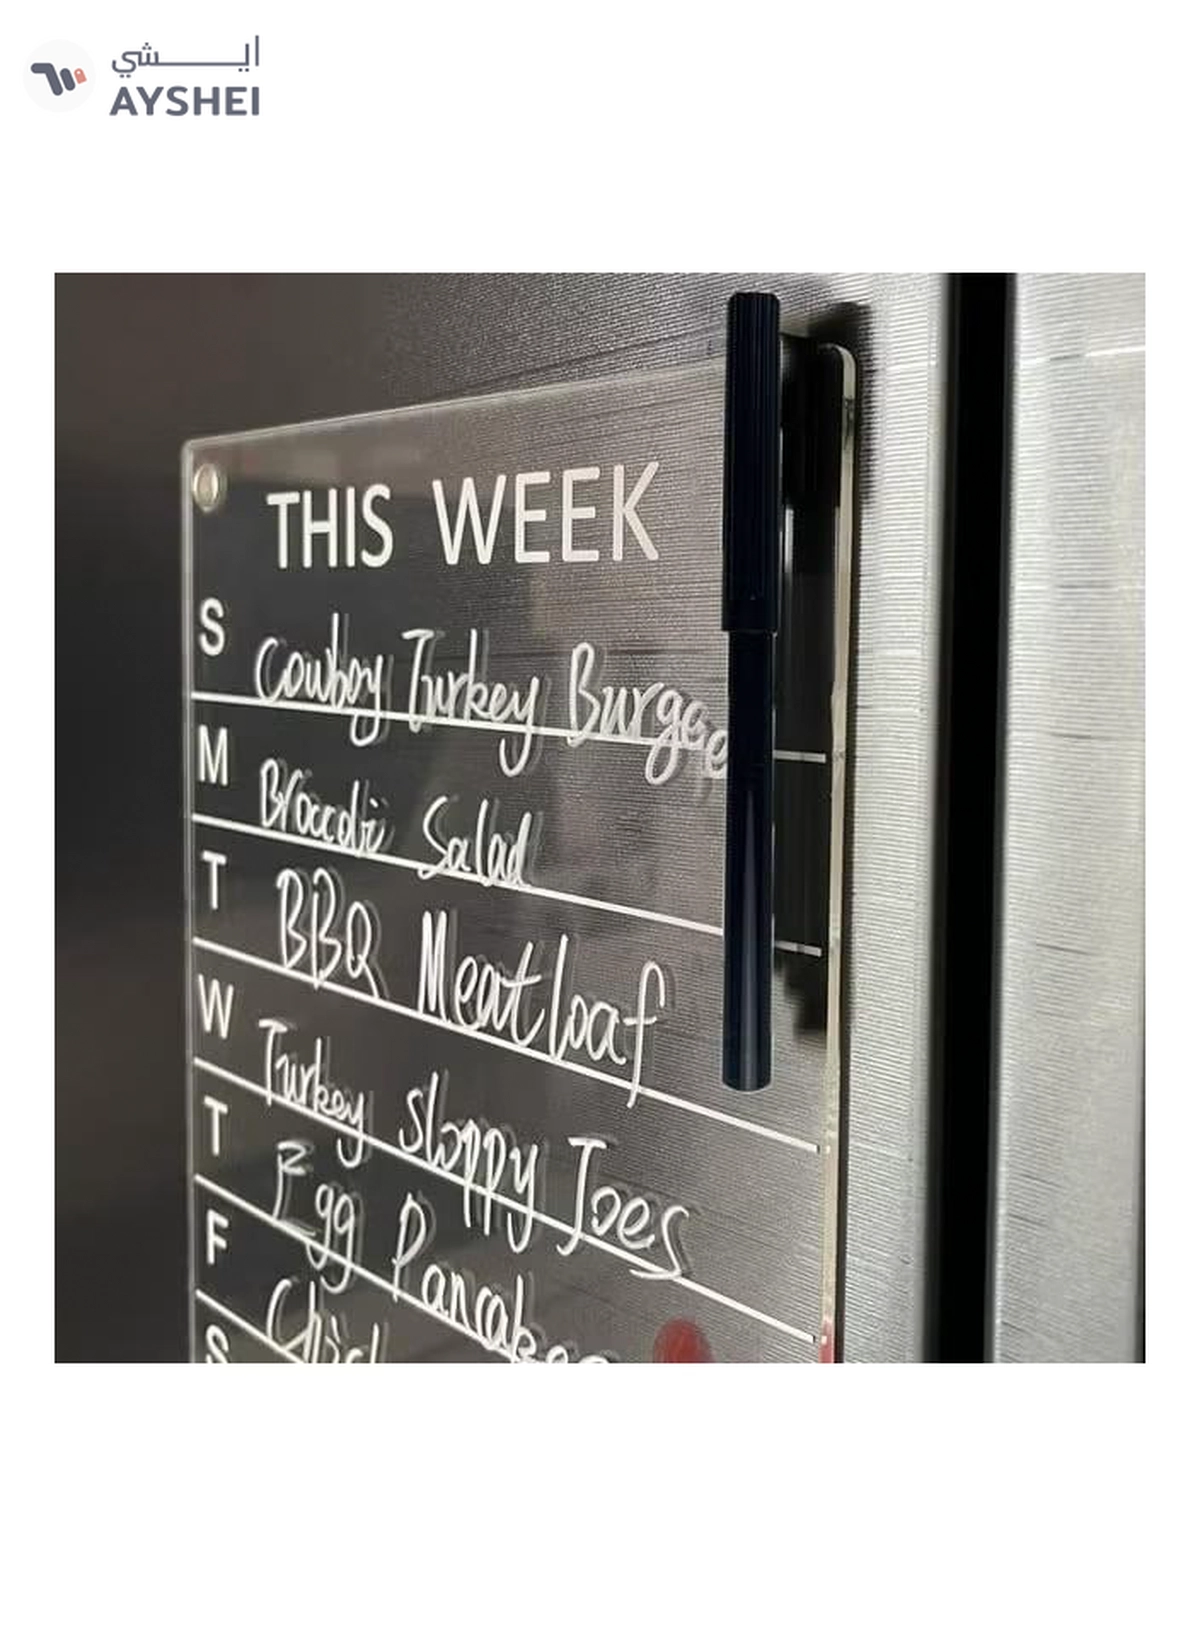 ايـــــشي
AYSHEI
THIS WEEK
S Cowboy Turkey
M Broccoli Salad
T BBQ Meatloaf
W Turkey Sloppy Joes
T Egg
F
S